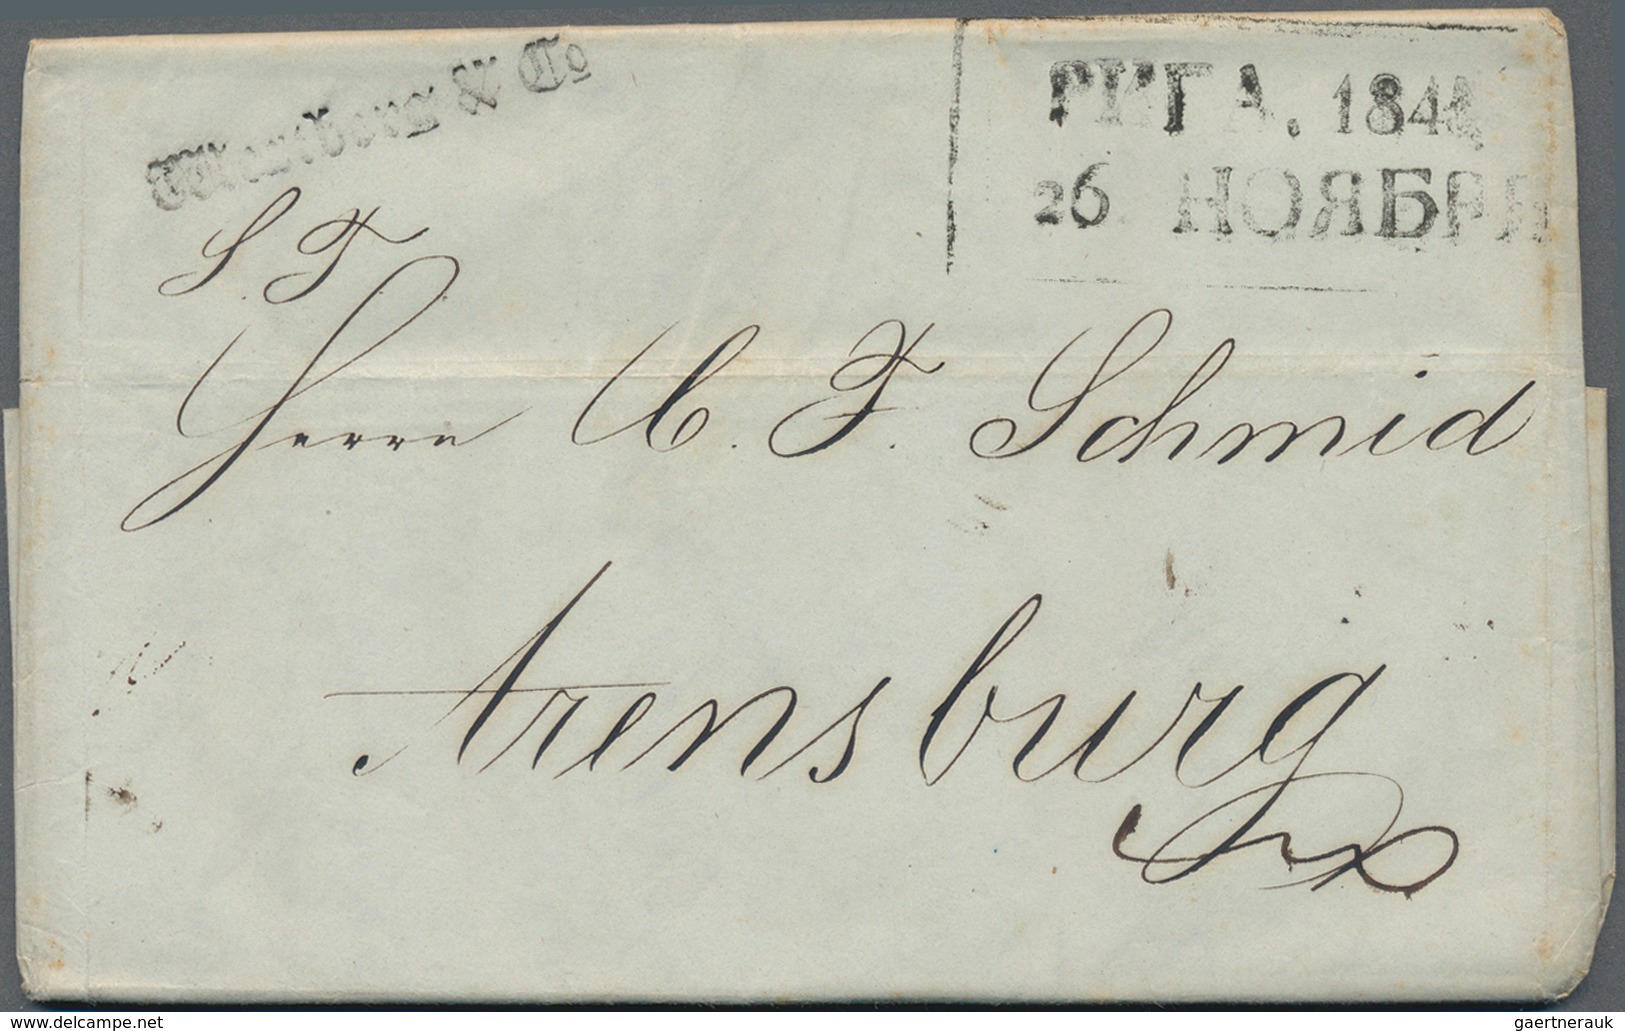 & Co
РИГА. 184
26 НОЯБРЯ
S. T.
Herrn C. F. Schmid
Arensburg
www.delcampe.net
gaertnerauk